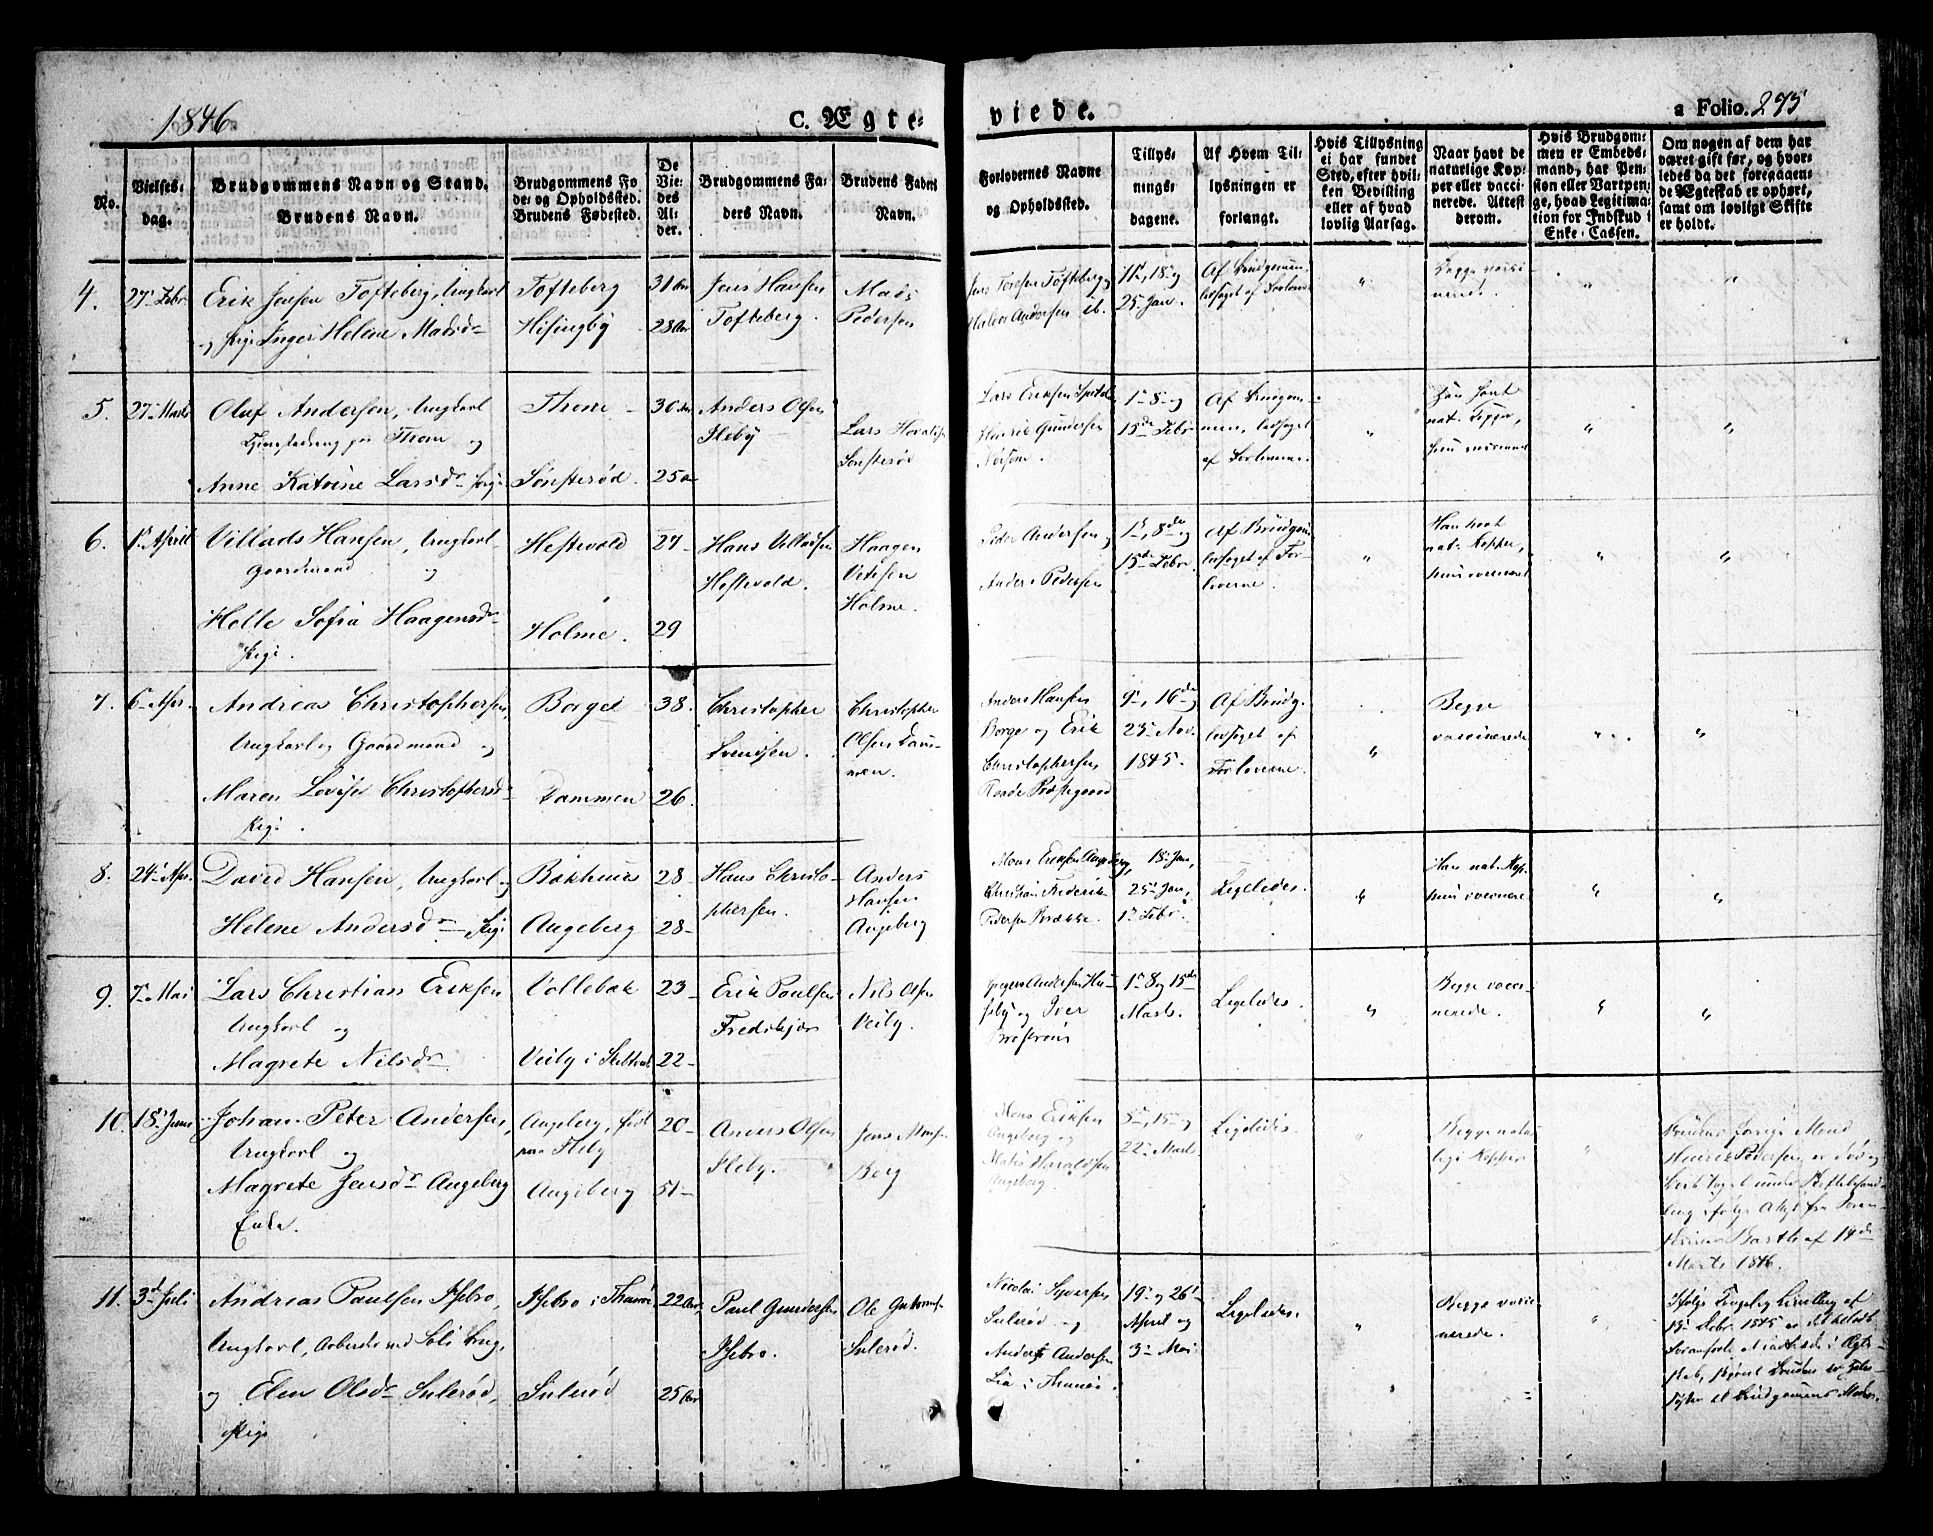 1846
C. Ægte-
viede.
a Folio. 275
No.
Vielses-
dag.
Brudgommens Navn og Stand.
Brudens Navn.
Brudgommens Fø
de- og Opholdssted.
Brudens Fødested.
De
Vie-
des
Al-
der.
Brudgommens Fa-
ders Navn.
Brudens Faders
Navn.
Forlovernes Navne
og Opholdssted.
Tillys-
nings-
dagene.
Af Hvem Til-
lysningen er
forlangt.
Hvis Tillysning
ei har fundet
Sted, efter hvil-
ken Bevilling
eller af hvad
lovlig Aarsag.
Naar havt de
naturlige Kop-
per eller vacci-
nerede. Attest
derom.
Hvis Brudgom-
men er Embeds-
mand, har Pen-
sion eller Vartpen-
ge, hvad Legitima-
tion for Indskud i
Enke-Cassen.
Om nogen af dem har
været gift før, og hvor-
ledes da det foregaaen-
de Ægteskab er ophørt,
samt om lovligt Skifte
er holdt.
4.
27 Febr
Erik Jensen Tofteberg, Ungkarl
og Pige Inger Helene Madsd
Tofteberg
Hisingby
31 Aar
28 Aar
Jens Hansen
Tofteberg.
Mads
Pedersen
Tofteberg og
Halvor Andersen ib.
11, 18 og
25 Jan.
Af Brudgommen
ledsaget af Forlovere
Begge vacci-
nerede.
5.
27 Marts
Oluf Andersen, Ungkarl
Thom og
Anne Katrine Larsd Pige
Thom
Sønsterød.
30 Aar
25 Aar
Anders Olsen
Fleby
Lars
Sønsterød
Lars Eriksen
Henrik Gundersen
1 8 og
15de Febr
Af Brudgom-
men, ledsaget
af Forloverne.
Han havt
nat. Kopper,
hun vaccineret
6.
1 April
Villads Hansen, Ungkarl
Gaardmand og
Helle Sofia Haagensd
Pige.
Hestevold
Holme.
27
29
Hans Villadsen
Hestevold.
Haagen
Holme.
Peder Andersen og
Anders Pedersen
1, 8de og
15de Febr.
Af Brudgom
ledsaget af For-
loverne.
Han havt
nat. Kopper,
hun vaccineret
7.
6 Apr.
Andreas Christophersen,
Ungkarl og Gaardmand og
Maren Lovise Christophersd
Pige.
Borge
Dammen
38.
26.
Christopher
Svendsen.
Christopher
Olsen Dam-
men.
Anders Hansen
Borge og Erik
Christophersen
Raade Præstegaard
9, 16de
23 Nov.
1845.
Af Brudg.
ledsaget af
Forloverne.
Begge
vaccinerede
8.
24 Apr.
David Hansen, Ungkarl og
Helene Andersd Pige
Bakhuus
Augeberg
28
28
Hans Christo-
phersen.
Anders
Hansen
Augeberg
Mons Eriksen Augeberg,
Christian Frederik
Pedersen Brække.
18 Jan,
25 Jan,
1 Febr.
Ligeledes.
Han nat. Kop.
hun vaccineret
9.
7 Mai
Lars Christian Eriksen
Ungkarl og
Magrete Nilsd
Vollebæk
Veiby i
23
22
Erik Paulsen
Fredskjær
Nils Olsen
Veiby.
Andersen Hu-
seby og Iver
1 8 og 15de
Marts.
Ligeledes.
Begge vacci-
nerede.
10.
18 Juni
Johan Peter Andersen,
Ungkarl og
Magrete Jensd Augeberg
Enke.
Augeberg, født
paa Fleby
Augeberg
20
51
Anders Olsen
Fleby.
Jens
Berg
Mons Eriksen
Augeberg og
Haraldsen
Augeberg.
5, 15 og
22 Marts
Ligeledes.
Begge natur-
lige Kopper
Brudens forrige Mand
Henrik Pedersen er død og
under Skiftebehand-
ling ifølge Attest fra Soren-
skriver Barth af 19de
Marts 1846.
11.
3d Juli
Andreas Paulsen Isebro,
Ungkarl,
og Elen Olsd Sulerød,
Pige
Isebro i Thunø
Sulerød
22 Aar,
25 Aar
Paul Gundersen
Isebro.
Ole
Sulerød.
Nicolai Syversen
Sulerød og
Anders Andersen
Lia i Thunø.
19 og 26
April og
3 Mai
Ligeledes.
Begge vacci-
nerede.
Ifølge Kongelig Bevilling af
13 Febr. 1845 er det tilladt
at indtræde i Ægte-
skab, skjønt Bruden er
Søster til Brudgommens Moder.